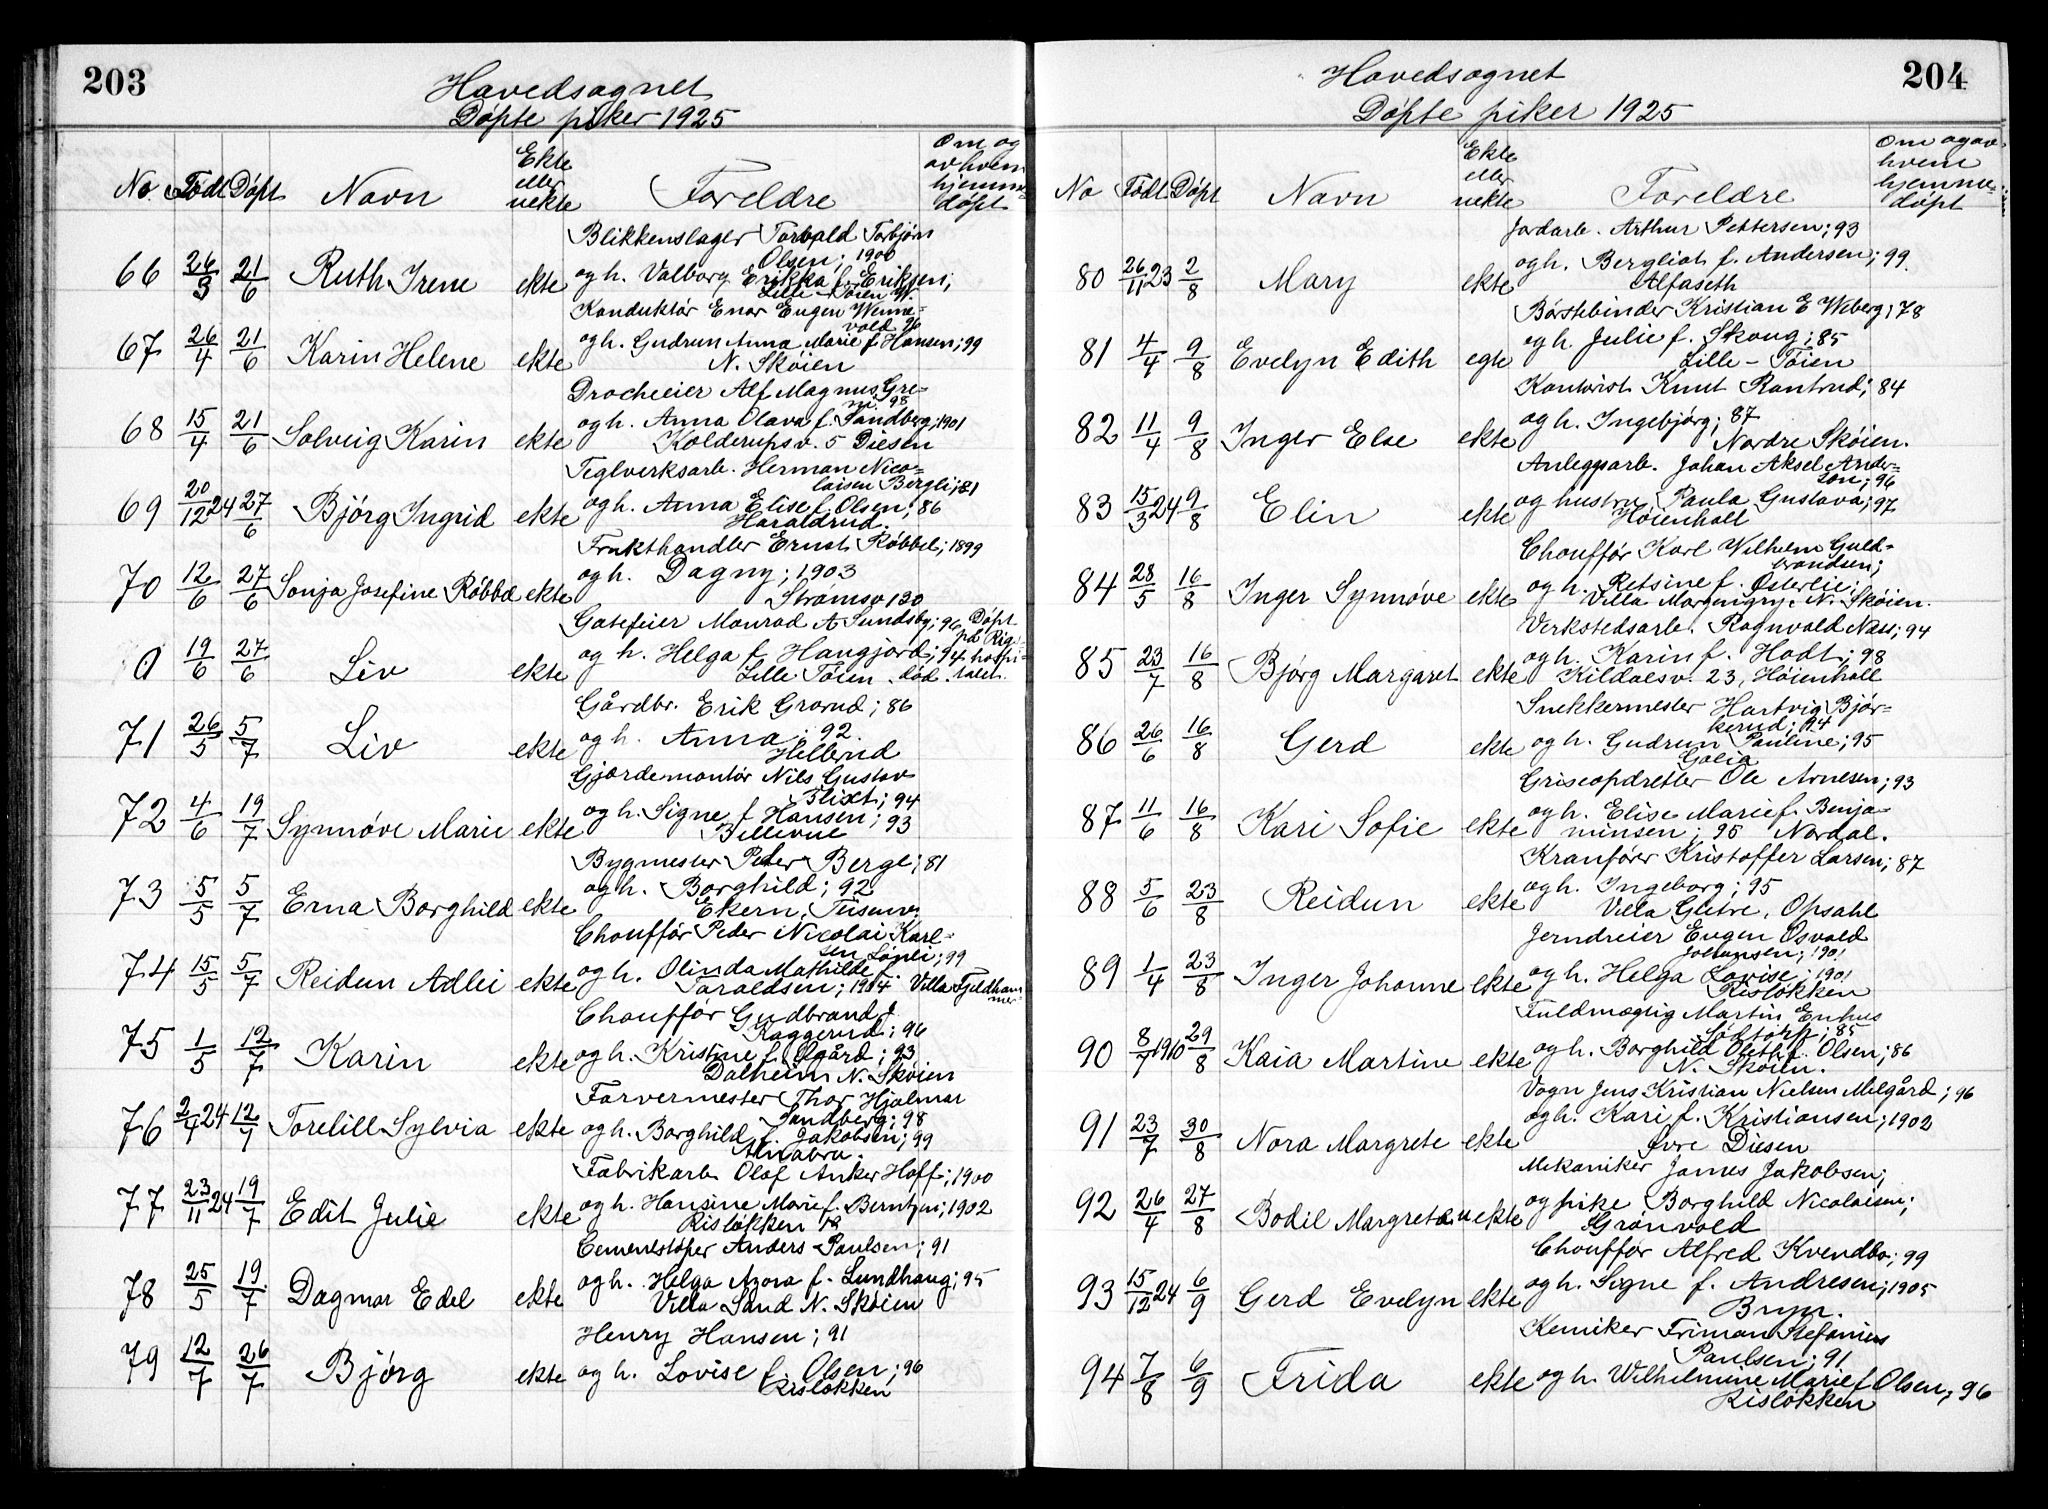 203
Hovedsognet
Døpte piker 1925
No Født Døpt Navn Ekte eller uekte Foreldre Om og av hvem hjemmedøpt
Blikkenslager Torvald Torbjørn
Olsen; 1900
66 26/3 21/6 Ruth Irene ekte og h. Valborg Erikka f. Eriksen;
Lille-Tøien V.
Konduktør Enar Eugen Wenne-
vold 96
67 26/4 21/6 Karin Helene ekte og h. Gudrun Anna Marie f. Hansen; 99
N. Skøien
Drocheeier Alf Magnus Gre-
ni. 98
68 15/4 21/6 Solveig Karin ekte og h. Anna Olava f. Sandberg; 1901
Kolderupsv. 5 Disen
Teglverksarb. Herman Nico-
laisen Bergli; 81
69 20/12 24 27/6 Bjørg Ingrid ekte og h. Anna Elise f. Olsen; 86
Haraldrud.
Frukthandler Ernst Røbbel; 1899
70 12/6 27/6 Sonja Josefine Røbbel ekte og h. Dagny; 1903
Strømsv 130
Gatefeier Monrad A Sundsby; 96 Døpt
på Rig-
0 19/6 27/6 Liv ekte og h. Helga f. Haugjord; 94 hospi-
Lille Tøien. død. talet.
Gårdbr. Erik Grorud; 86
71 26/5 5/7 Liv ekte og h. Anna; 92.
Hellerud
Gjærdemontør Nils Gustav
Flixt; 94
72 4/6 19/7 Synnøve Marie ekte og h. Signe f. Hansen; 93
Bellevue
Bygmester Peter Berge; 81
73 5/5 5/7 Erna Borghild ekte og h. Borghild; 92
Ekern, Teisenv.
Chauffør Peder Nicolai Karl-
sen Lønli; 99
74 15/5 5/7 Reidun Adlei ekte og h. Olinda Mathilde f.
Taraldsen; 1904 Villa Fjeldham-
mer
Chauffør Gudbrand J
Raggerud; 96
75 1/5 12/7 Karin ekte og h. Kristine f. Øgård; 93
Dalheim N. Skøien
Farvermester Thor Hjalmar
Sandberg; 98
76 2/4 24 12/7 Torelill Sylvia ekte og h. Borghild f. Jakobsen; 99
Alnabru.
Fabrikarb Olaf Anker Hoff; 1900
77 23/11 24 19/7 Edit Julie ekte og h. Hansine Marie f. Berntsen; 1902
Risløkken 13
Cementstøper Anders Paulsen; 91
78 25/5 19/7 Dagmar Edel ekte og h. Helga Azora f. Lundhaug; 95
Villa Sand N. Skøien
Henry Hansen; 91
79 12/7 26/7 Bjørg ekte og h. Lovise f. Olsen; 96
Risløkken
204
Hovedsognet
Døpte piker 1925
No Født Døpt Navn Ekte eller uekte Foreldre Om og av hvem hjemme-døpt
Jordarb. Arthur Pettersen; 93
80 26/11 23 2/8 Mary ekte og h. Bergliot f. Andersen; 99.
Alfaseth
Børstebinder Kristian E Wiberg; 78
81 4/4 9/8 Evelyn Edith egte og h. Julie f. Skoug; 85
Lille-Tøien
Kontorist Knut Rantrud; 84
82 11/4 9/8 Inger Else ekte og h. Ingebjørg; 87
Nordre Skøien.
Anleggsarb. Johan Aksel Ander-
son; 96
83 15/3 24 9/8 Elin ekte og hustru Paula Gustava; 97
Høienhall
Chauffør Karl Wilhelm Guld-
brandsen;
84 28/5 16/8 Inger Synnøve ekte og h. Retsine f. Østerlie;
Villa Morgengry, N. Skøien.
Verkstedsarb. Ragnvald Næss; 94
85 23/7 16/8 Bjørg Margaret ekte og h. Karin f. Hodt; 98
Kildalsv. 23, Høienhall
Snekkermester Hartvig Bjør-
kerud; 94
86 26/6 16/8 Gerd ekte og h. Gudrun Pauline; 95
Golia
Griseopdretter Ole Arnesen; 93
87 11/6 16/8 Kari Sofie ekte og h. Elise Marie f. Benja-
minsen; 95 Nordal.
Kranfører Kristoffer Larsen; 87
88 5/6 23/8 Reidun ekte og h. Ingeborg; 95
Villa Glitre, Opsahl
Jerndreier Eugen Osvald
Johansen; 1901
89 1/4 23/8 Inger Johanne ekte og h. Helga Lovise; 1901
Risløkken
Fuldmægtig Martin Enhus
Sødtopp; 85
90 8/7 1910 29/8 Kaia Martine ekte og h. Borghild Oleth f. Olsen; 86
N. Skøien.
Vogn Jens Kristian Nielsen Melgård; 96
91 23/7 30/8 Nora Margrete ekte og h. Kari f. Kristiansen; 1902
Øvre Disen
Mekaniker James Jakobsen;
92 26/4 27/8 Bodil Margrete uekte og pike Borghild Nicolaisen;
Grønvold
Chauffør Alfred Kvendbo; 99
93 15/12 24 6/9 Gerd Evelyn ekte og h. Signe f. Andresen; 1905
Bryn.
Kemiker Friman Stefanius
Paulsen; 91
94 7/8 6/9 Frida ekte og h. Wilhelmine Marie f Olsen; 96
Risløkken